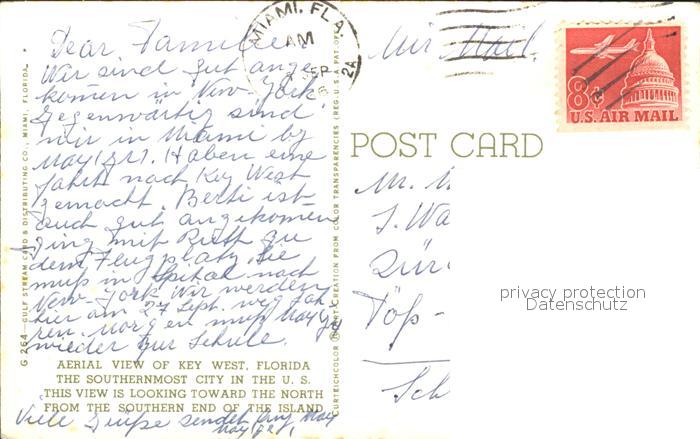 Dear Familie
Wir sind gut ange-
komen in New-York.
Gegenwärtig sind
wir in Miami by
May(Jr). Haben eine
Fahrt nach Key West
gemacht. Berti ist
auch gut angekomen
ging mit Ruth zu
dem Flugplatz. Sie
muss in Spital nach
New-York. Wir werden
hier am 27 Sept. weg fah
ren. Morgen muss May Jr
wieder zur Schule.
AERIAL VIEW OF KEY WEST, FLORIDA
THE SOUTHERNMOST CITY IN THE U. S.
THIS VIEW IS LOOKING TOWARD THE NORTH
FROM THE SOUTHERN END OF THE ISLAND
Viele Grüsse sendet May
May Jr,
G 264—GULF STREAM CARD & DISTRIBUTING CO., MIAMI, FLORIDA
CURTEICHCOLOR ART-CREATION FROM COLOR TRANSPARENCIES (REG. U.S.A. PAT. OFF.)
MIAMI, FLA.
AM
SEP
2A
Air Mail.
8¢
U.S. AIR MAIL
POST CARD
Mr.
J. Wa
Zür
Töss-
Sch
privacy protection
Datenschutz